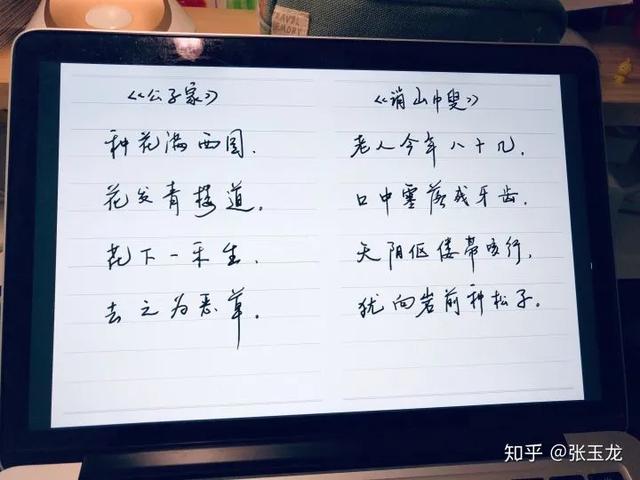 RAVEL
MEMORY
《公子家》
种花满西园.
花发青楼道.
花下一禾生.
去之为恶草.
《诮山中叟》
老人今年八十几,
口中零落残牙齿.
天阴伛偻带咳行,
犹向岩前种松子.
知乎 @张玉龙